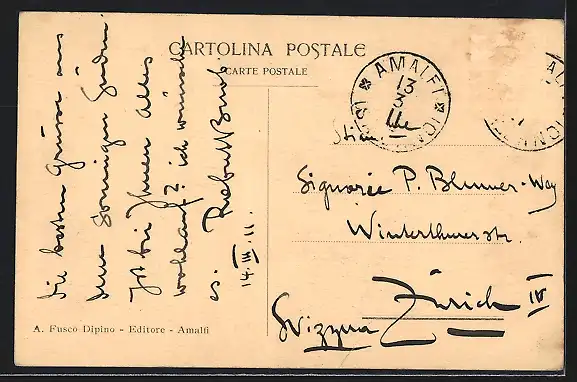 CARTOLINA POSTALE
CARTE POSTALE
Die besten Grüsse aus
dem sonnigen Süden.
Ist bei Ihnen alles
wohlauf? ich wünsche
es.
14.III.11.
AMALFI
13
3
Signorée P. Blumer-Way
Winterthurerstr.
Zürich IV
Svizzera
A. Fusco Dipino - Editore - Amalfi